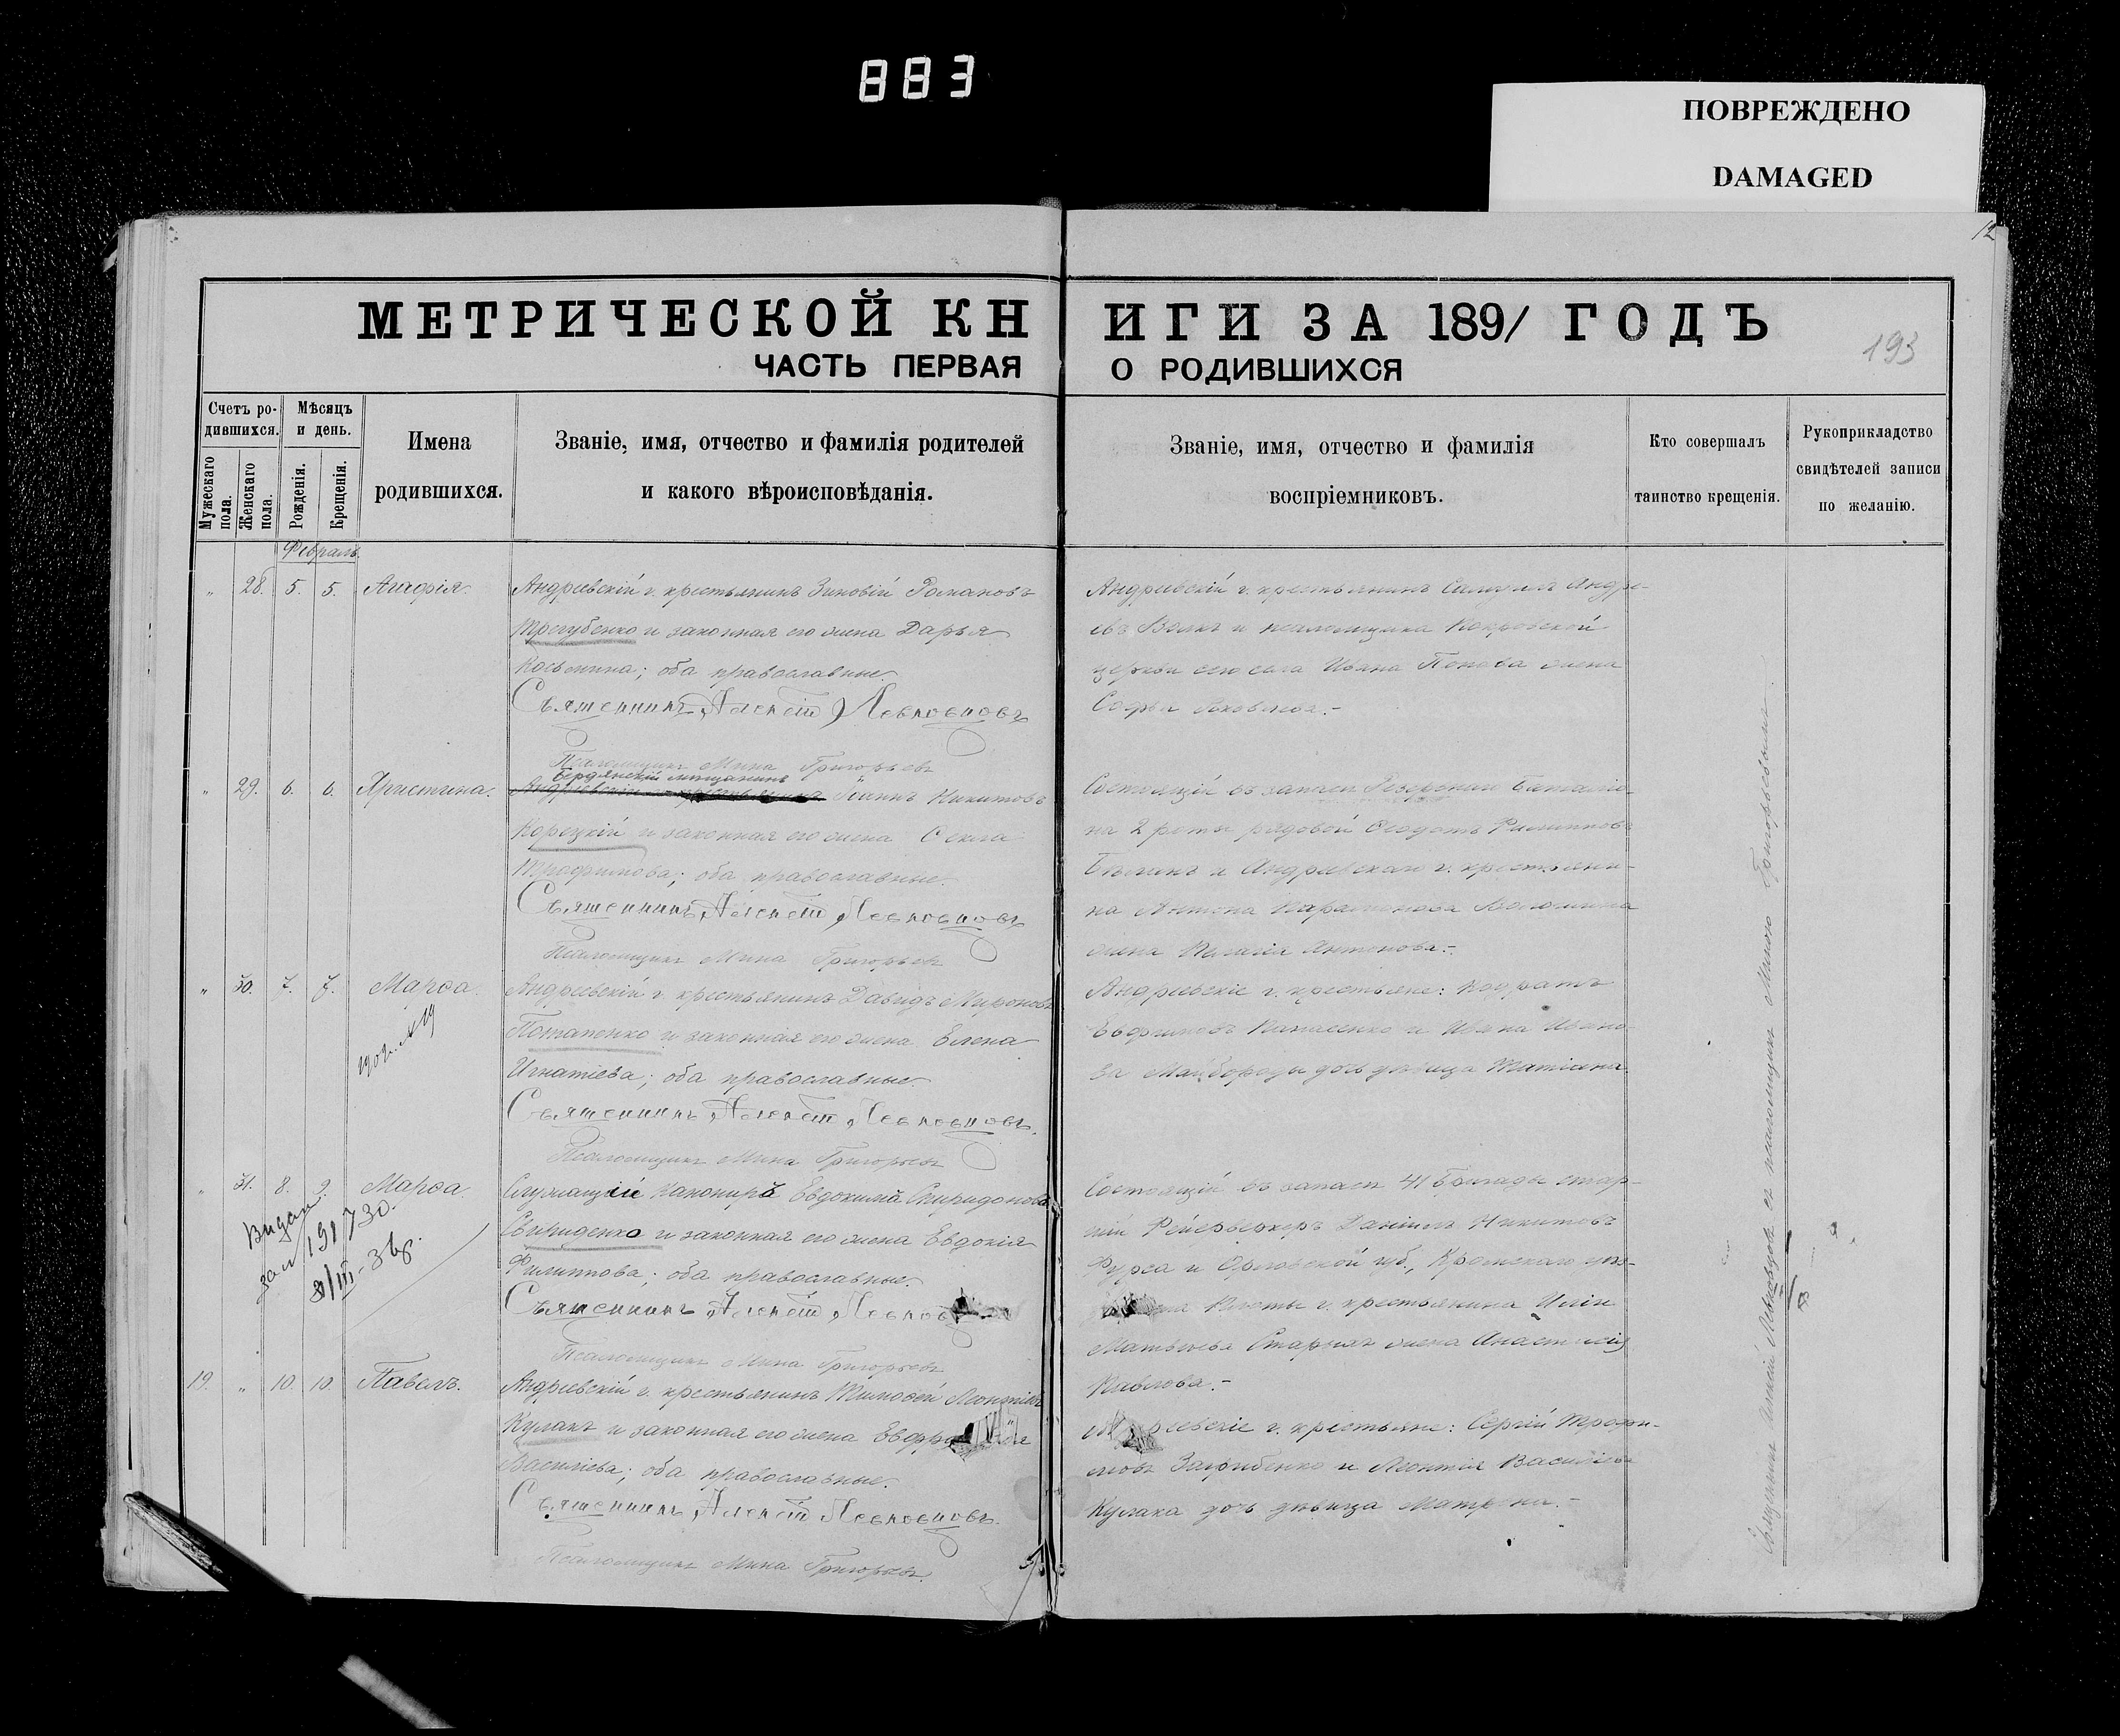 883
ПОВРЕЖДЕНО
DAMAGED
12
МЕТРИЧЕСКОЙ КНИГИ ЗА 1891 ГОДЪ
193
ЧАСТЬ ПЕРВАЯ О РОДИВШИХСЯ
Счетъ ро-
дившихся.
Мужескаго пола.
Женскаго пола.
Мѣсяцъ
и день.
Рожденія.
Крещенія.
Имена
родившихся.
Званіе, имя, отчество и фамилія родителей
и какого вѣроисповѣданія.
Званіе, имя, отчество и фамилія
воспріемниковъ.
Кто совершалъ
таинство крещенія.
Рукоприкладство
свидѣтелей записи
по желанію.
Февраль
" 28. 5. 5. Агафія.
Андреевскій г. крестьянинъ Зиновій Романовъ
Трегубенко и законная его жена Дарья
Косьмина; оба православные.
Священникъ Алексій
Псаломщикъ Мина Григорьевъ
Андреевскій г. крестьянинъ Самуилъ Андре-
евъ Волкъ и псаломщика Покровской
церкви сего села Ивана Попова жена
Софья Яковлева.-
" 29. 6. 6. Христина.
Бердянскій мѣщанинъ
Іоаннъ Никитовъ
Корецкій и законная его жена Ѳекла
Трофимова; оба православные.
Священникъ Алексій
Псаломщикъ Мина Григорьевъ
Состоящій въ запасѣ баталіо-
на 2 роты рядовой Ѳеодотъ Филипповъ
и Андреевскаго г. крестьяни-
на Антона
жена Пелагія Антонова.-
" 30. 7. 7. Марѳа.
Андреевскій г. крестьянинъ Давидъ Мироновъ
Потапенко и законная его жена Елена
Игнатіева; оба православные.
Священникъ Алексій
Псаломщикъ Мина Григорьевъ
Андреевскіе г. крестьяне: Кодратъ
Евфимовъ и Ивана Ивано-
ва Майбороды дочь дѣвица Татіана.
" 31. 8. 9. Марѳа.
1917 30.
8/III - 36р.
Служащій канониръ Евдокимъ Спиридоновъ
Свириденко и законная его жена Евдокія
Филиппова; оба православные.
Священникъ Алексій
Псаломщикъ Мина Григорьевъ
Состоящій въ запасѣ 41 бригады стар-
шій Фейерверкеръ Даніилъ Никитовъ
Фурса и Орловской губ., Кромскаго уѣз-
г. крестьянина Иліи
Матвѣева жена Анастасія
Павлова.-
19. " 10. 10. Павелъ.
Андреевскій г. крестьянинъ Тимоѳей Леонтіевъ
Кулакъ и законная его жена
Василіева; оба православные.
Священникъ Алексій
Псаломщикъ Мина Григорьевъ
г. крестьяне: Сергій Трофи-
мовъ и Леонтія Василіева
Кулака дочь дѣвица Матрона.-
Священникъ Алексій съ псаломщикомъ Миною Григорьевымъ